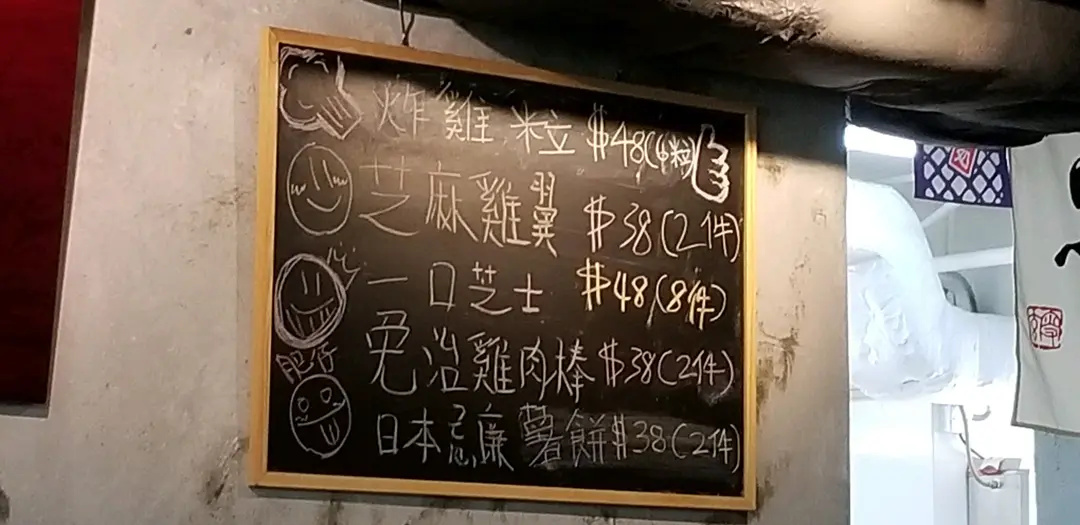 炸雞粒 $48(6粒)
芝麻雞翼 $38(2件)
一口芝士 $48(8件)
免治雞肉棒 $38(2件)
肥仔
日本忌廉薯餅 $38(2件)